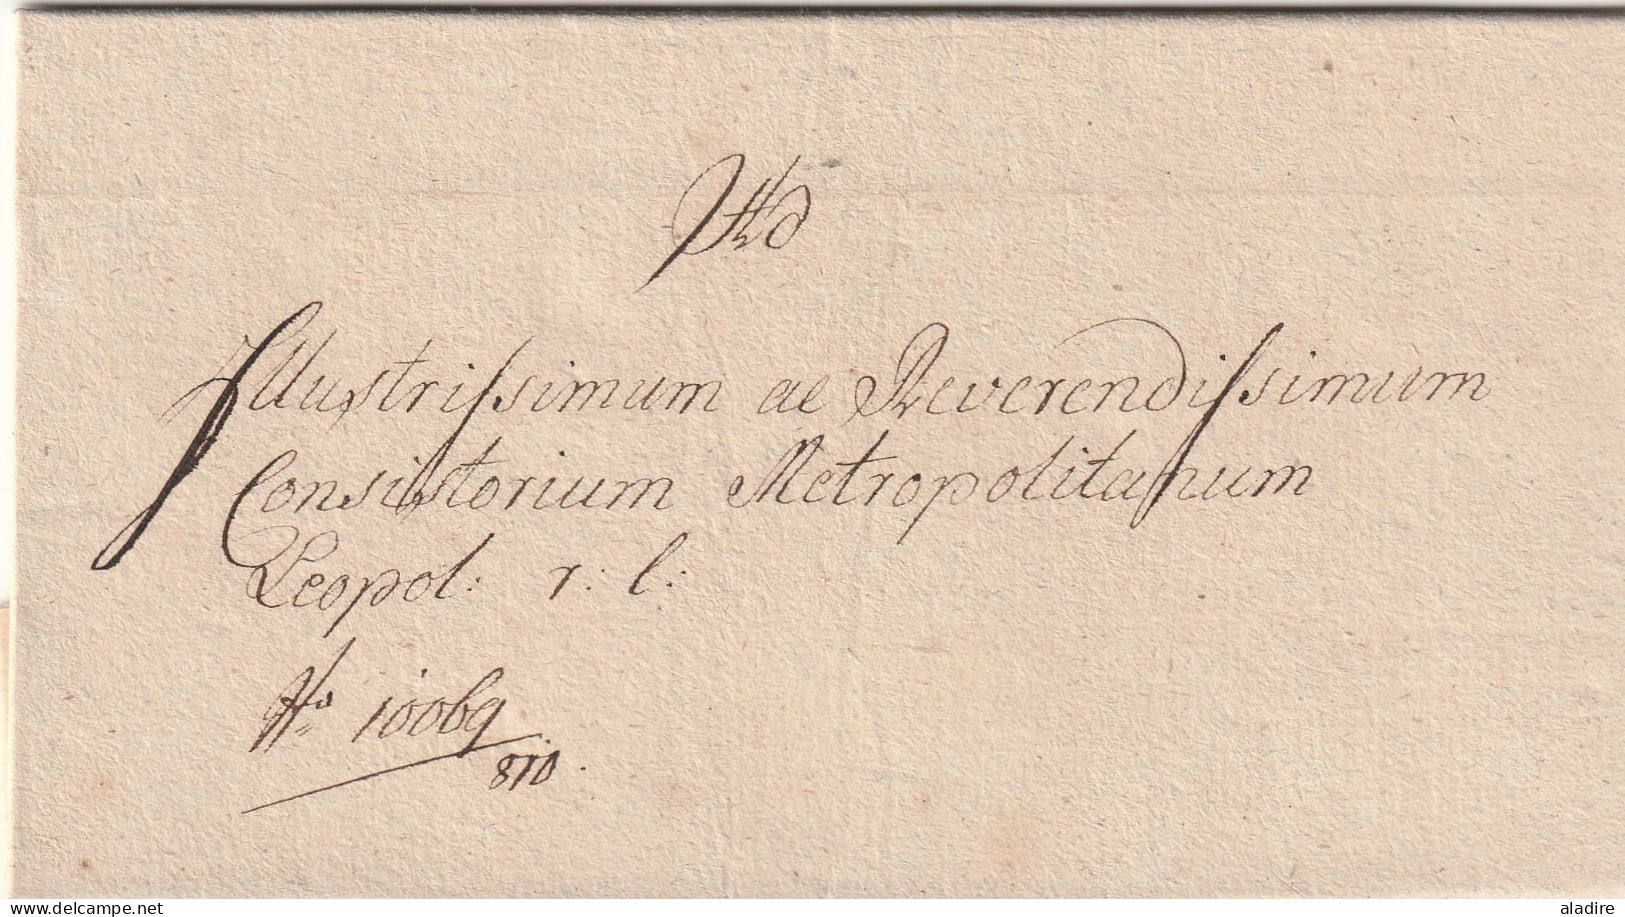 Ad
Illustrissimum ac Reverendissimum
Consistorium Metropolitanum
Leopol: r: l:
No 10069
810.
aladire